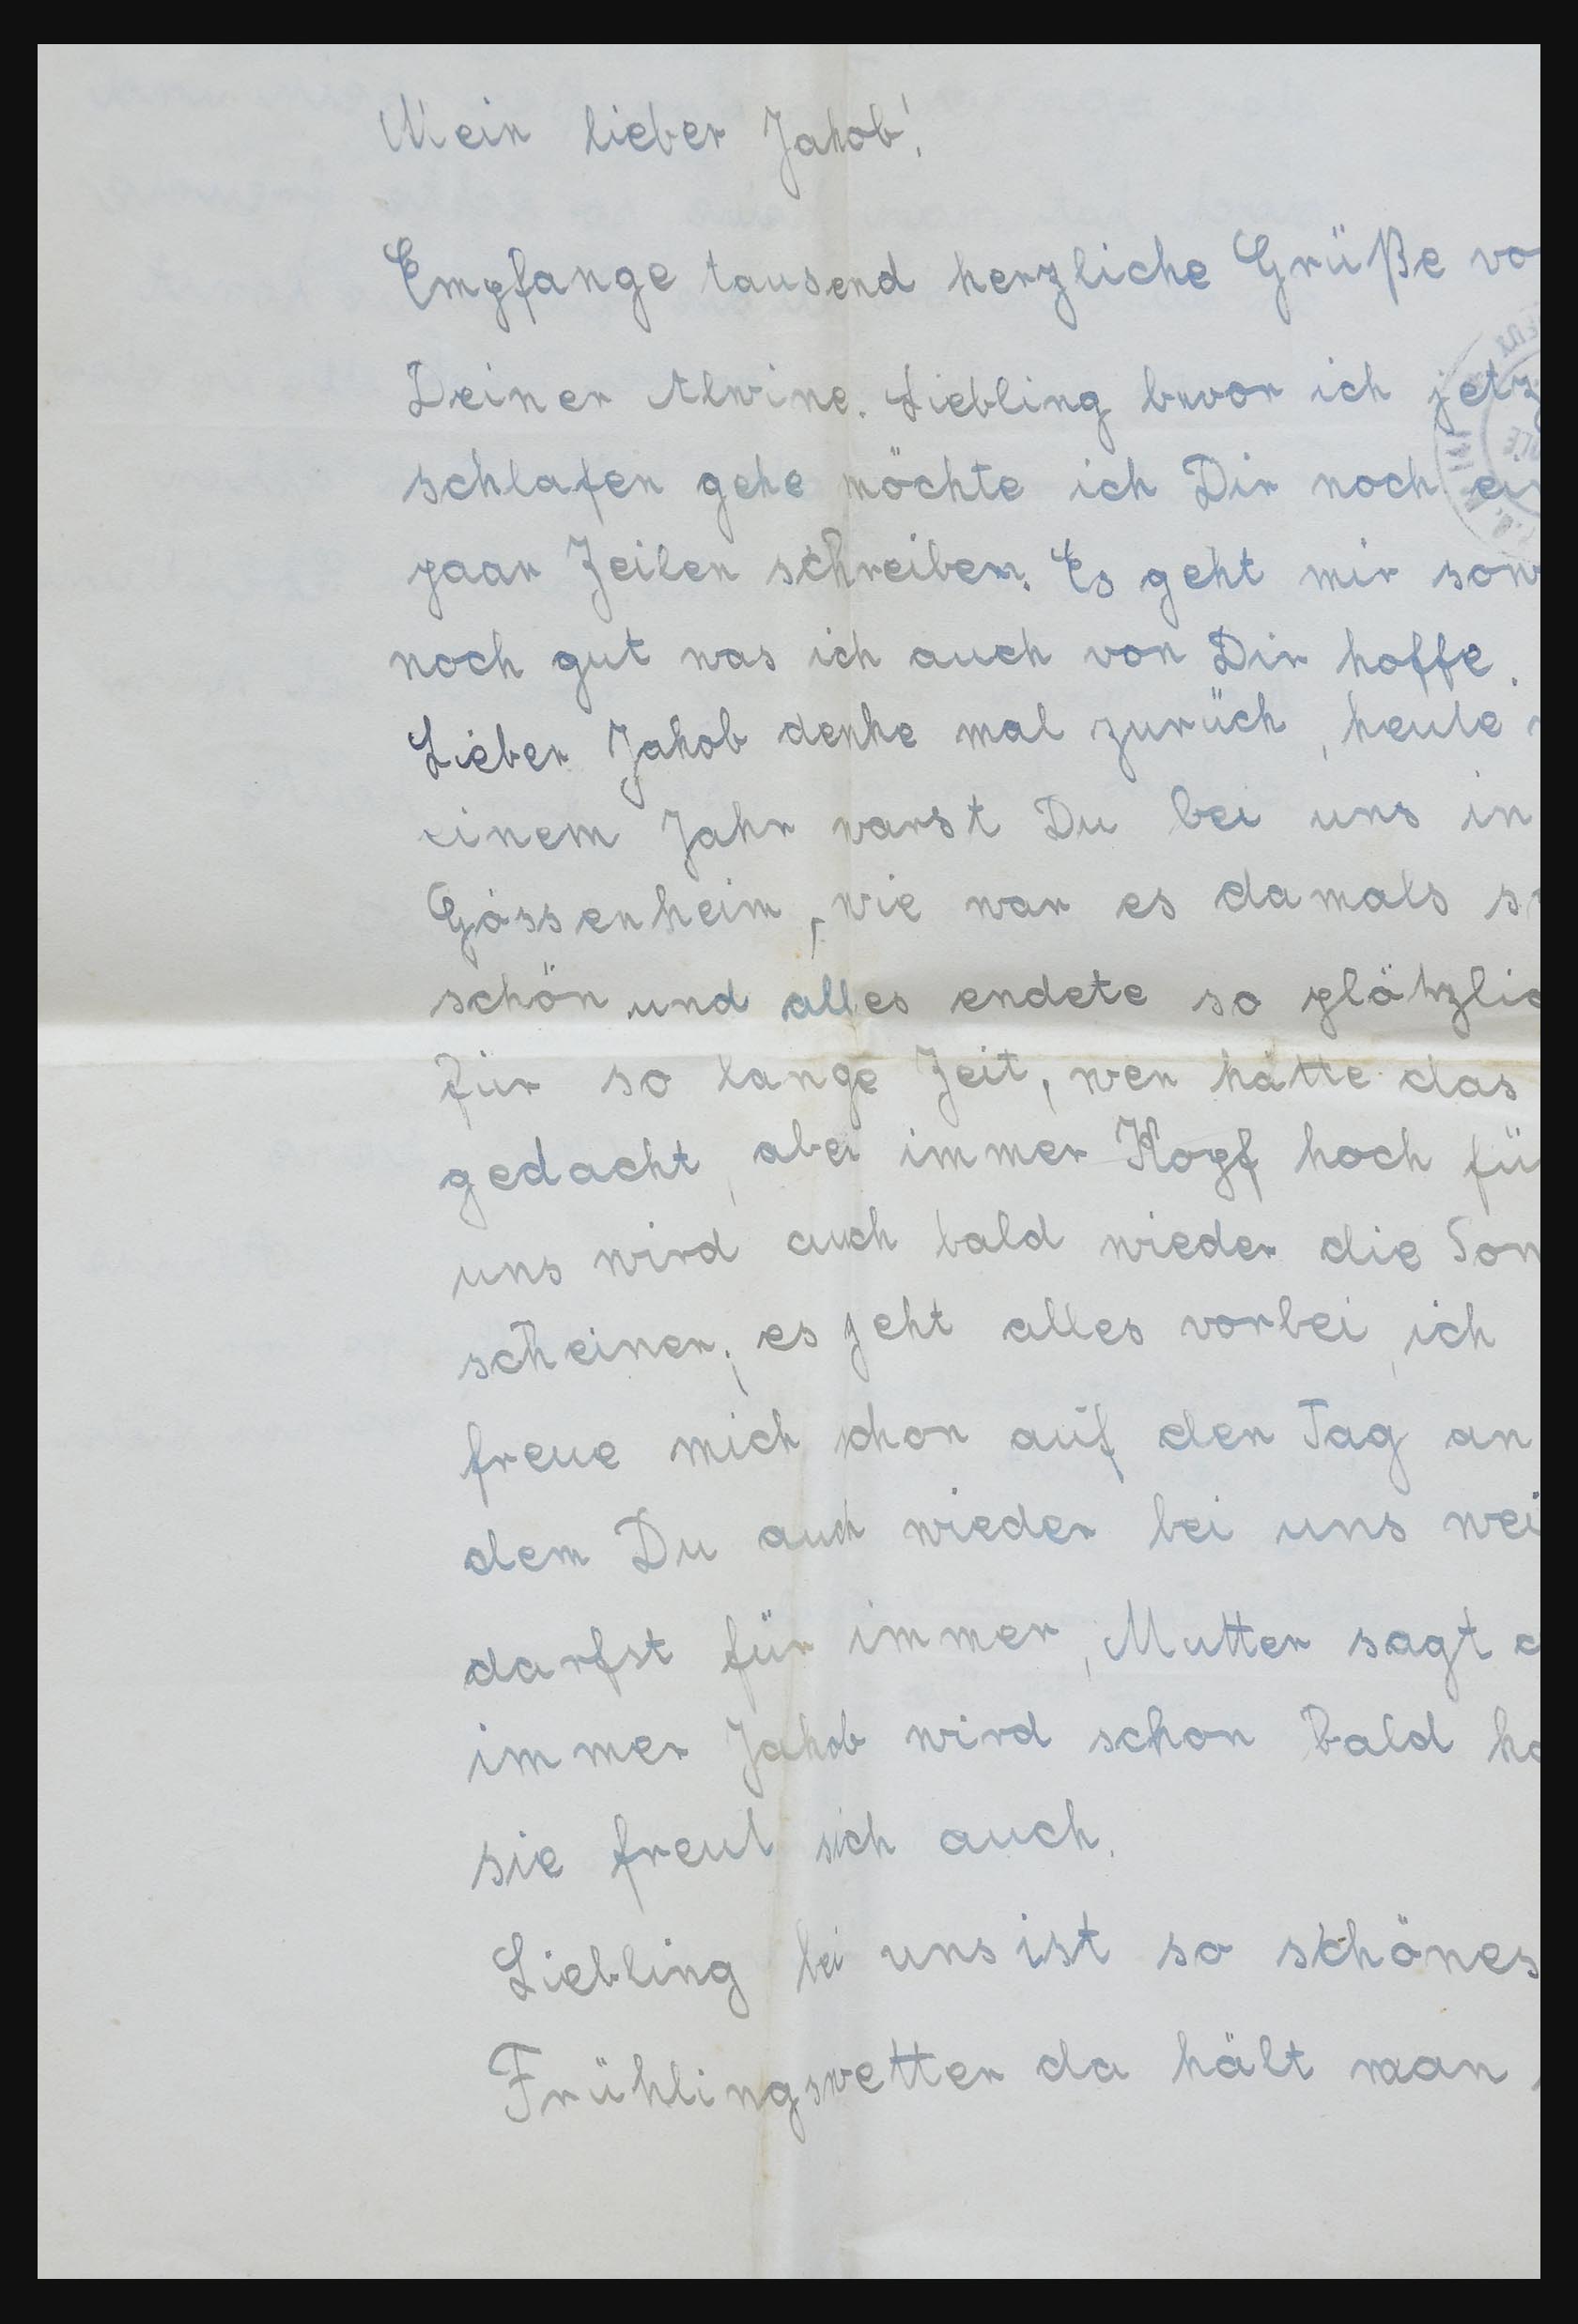 Mein lieber Jakob!
Empfange tausend herzliche Grüße vo
Deiner Alwine. Liebling bevor ich jetz
schlafen gehe möchte ich Dir noch ein
paar Zeilen schreiben. Es geht mir sow
noch gut was ich auch von Dir hoffe.
Lieber Jakob denke mal zurück, heute
einem Jahr warst Du bei uns in
Gössenheim, wie war es damals so
schön und alles endete so plötzlic
für so lange Zeit, wer hätte das
gedacht, aber immer Kopf hoch für
uns wird auch bald wieder die Son
scheinen, es geht alles vorbei, ich
freue mich schon auf den Tag an
dem Du auch wieder bei uns wei
darfst für immer, Mutter sagt
immer Jakob wird schon bald ko
sie freut sich auch.
Liebling bei uns ist so schönes
Frühlingswetter da hält man